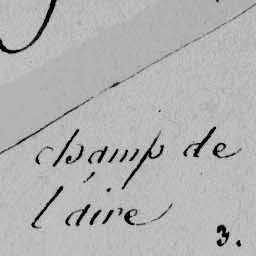 champ de
l'aire
3.